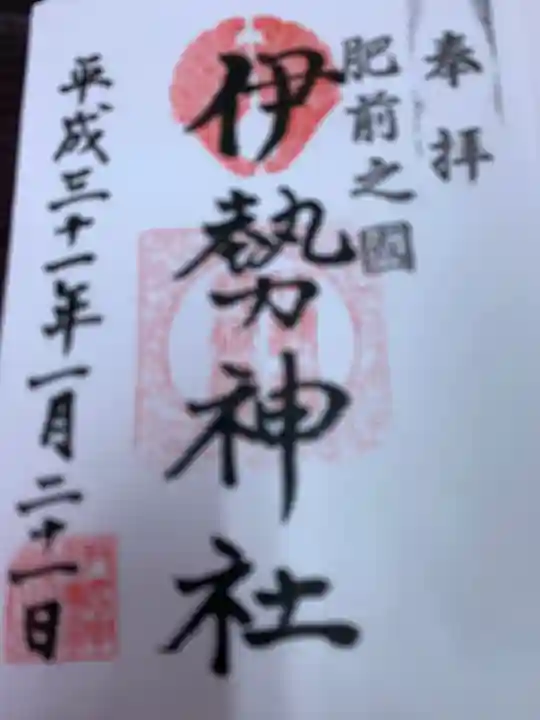 奉拝
肥前之國
伊勢神社
平成三十一年一月二十一日